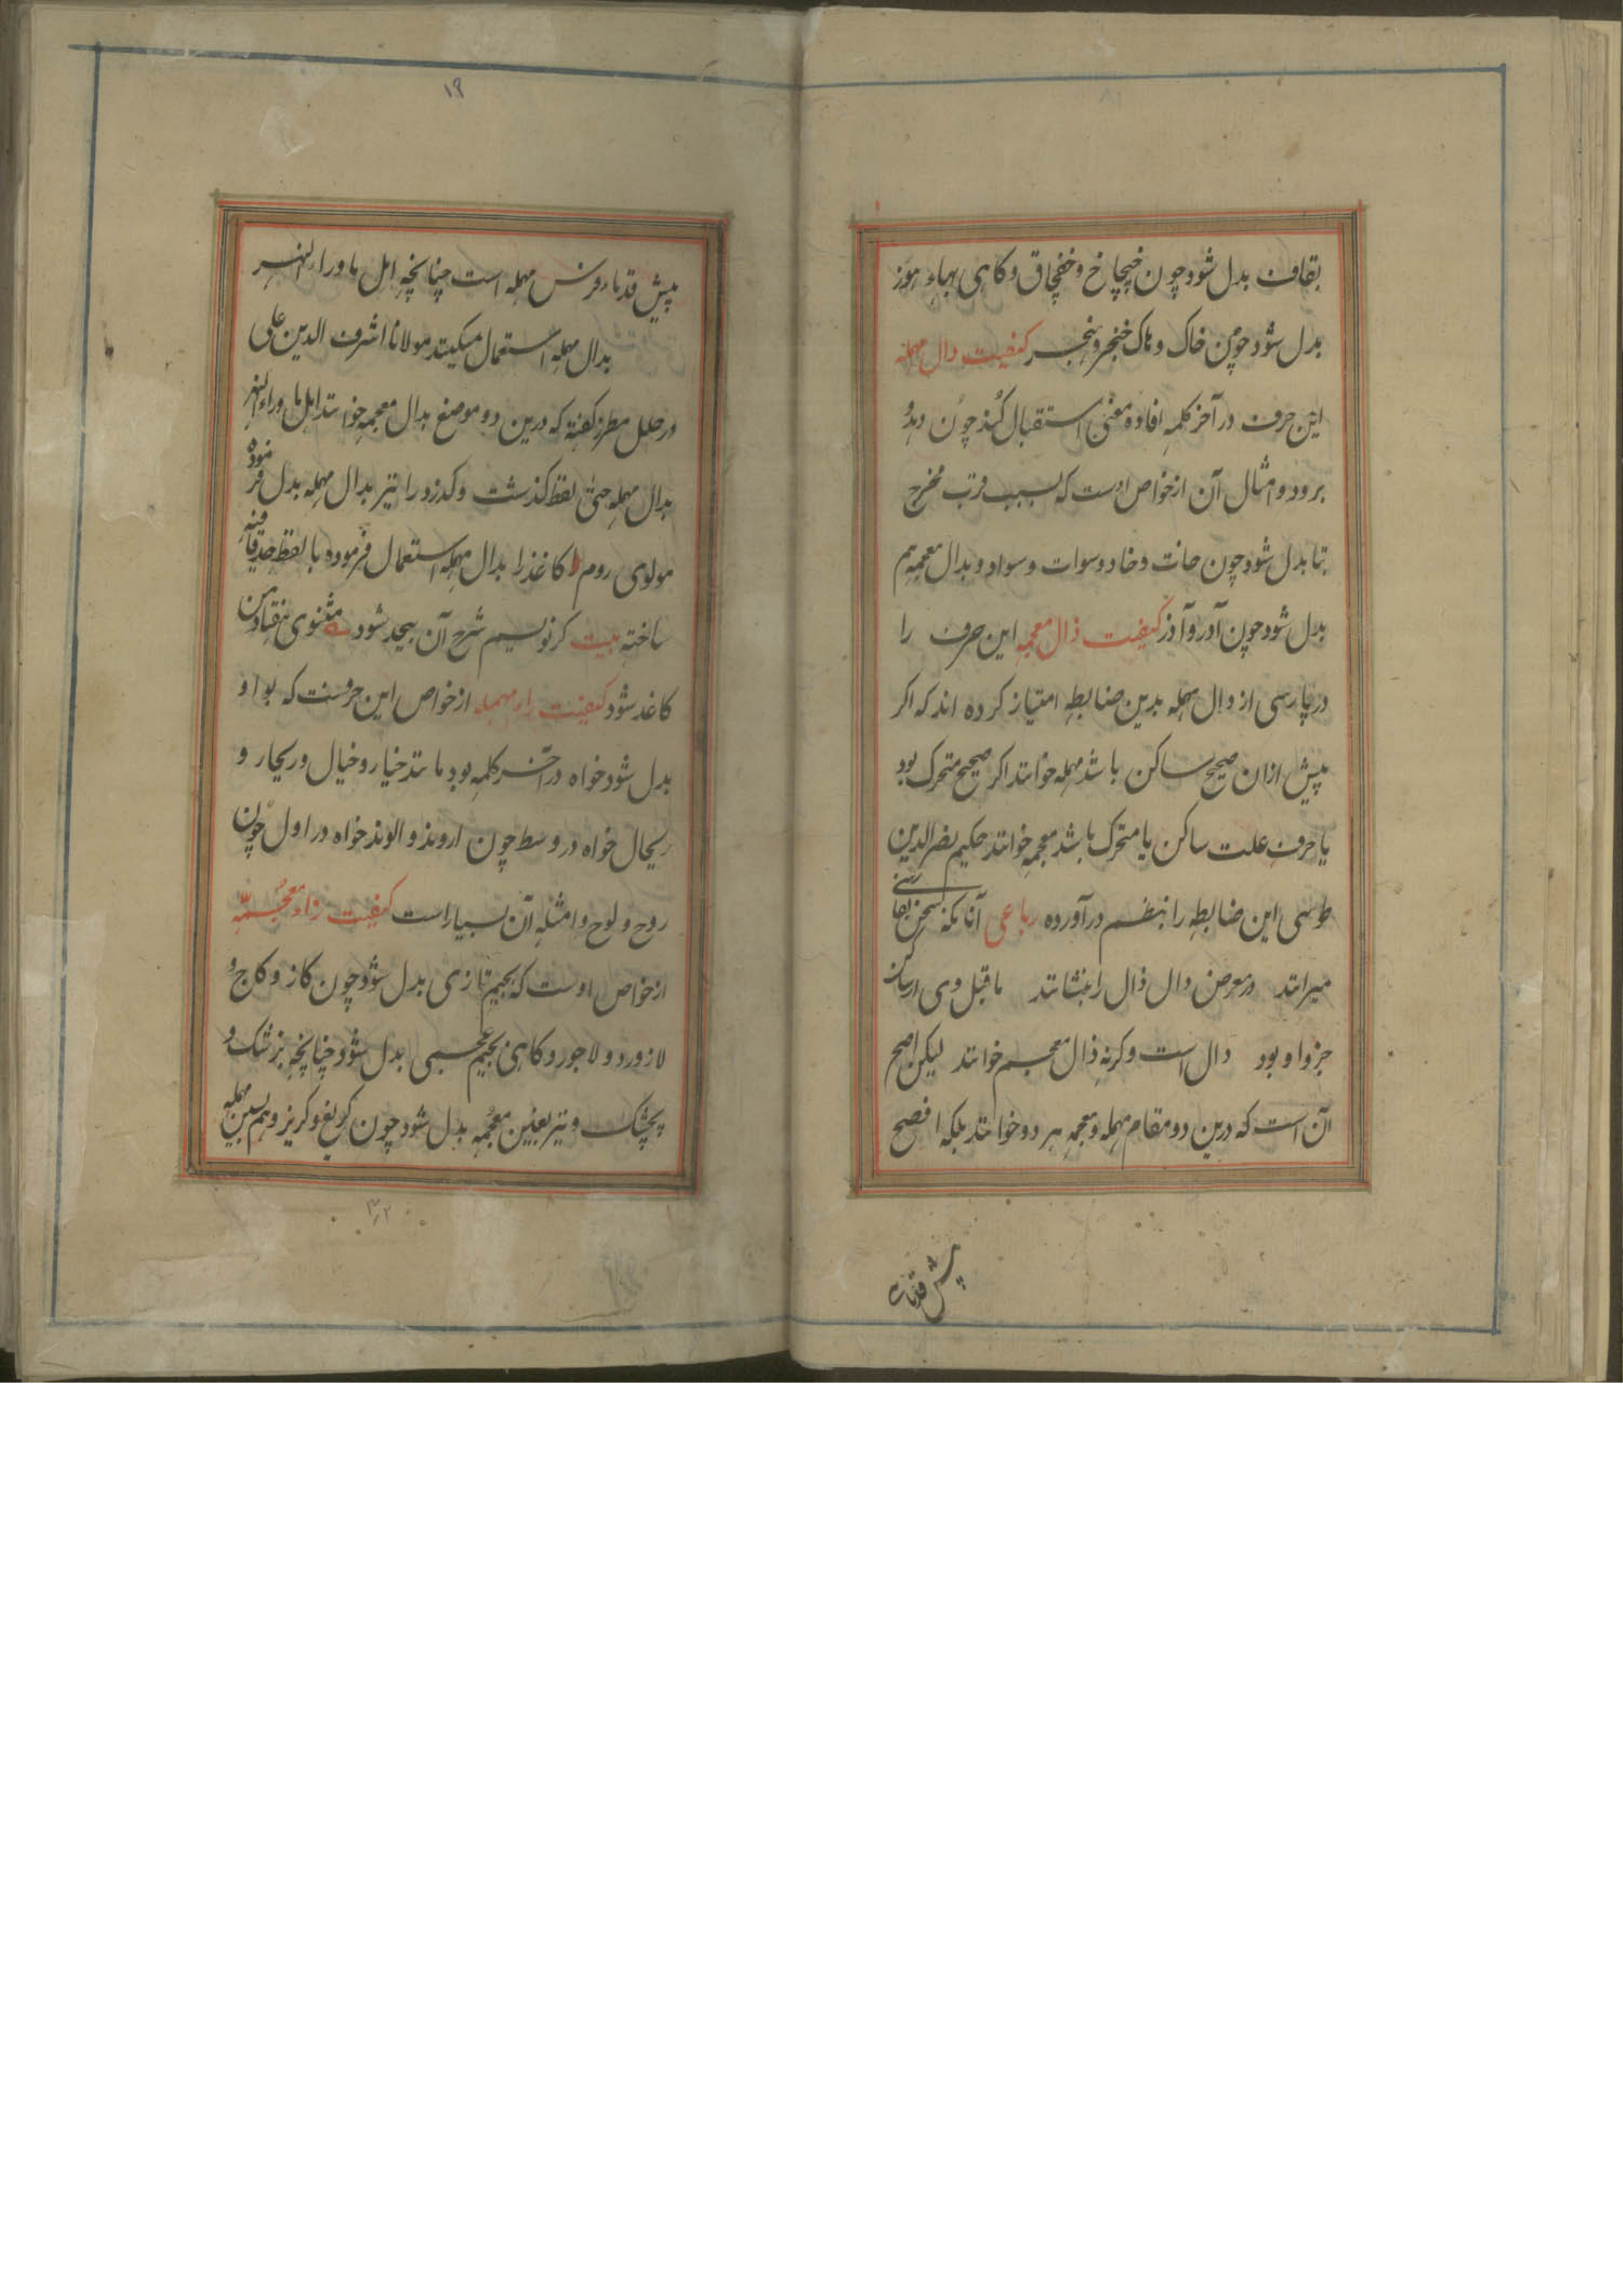 بقاف بدل شود چون خپچاخ و خفچاق و کاهی بهاء هوز
بدل شود چون خاک و هاک خنجر و هنجر کیفیت دال مهمله
این حرف در آخر کلمه افاده معنی استقبال کند چون دهد و
برود و امثال آن از خواص اوست که بسبب قرب مخرج
بتا بدل شود چون خات و خاد و سوات و سواد و بدال معجمه هم
بدل شود چون آدر و آذر کیفیت ذال معجمه این حرف را
در پارسی از دال مهمله بدین ضابطه امتیاز کرده اند که اکر
پیش ازان صحیح ساکن باشد مهمله خوانند اکر صحیح متحرک بود
یا حرف علت ساکن یا متحرک باشد معجمه خوانند حکیم نصر الدین
طوسی این ضابطه را بنظم در آورده رباعی آنانکه بفارسی سخن
میرانند در معرض دال ذال را ننشانند ماقبل وی ار ساکن
جز وا و بود دال است وکرنه ذال معجم خوانند لیکن اصح
آن است که درین دو مقام مهمله و معجمه هر دو خوانند بلکه افصح
پیش قدماء
۱۹
پیش قدماء فرس مهمله است چنانچه اهل ماوراء النهر
بدال مهمله استعمال میکنند مولانا اشرف الدین علی
در حلل مطرز کفته که درین دو موضع بدال معجمه خوانند اهل ماوراء النهر
بدال مهمله حتی لفظ کذشت و کذرد را نیز بدال مهمله بدل فرموده
مولوی روم کاغذ را بدال مهمله استعمال فرموده با لفظ حد قافیه
ساخته بیت کر نویسم شرح آن بیحد شود مثنوی هفتاد من
کاغد شود کیفیت راء مهمله از خواص این حرفست که بوا و
بدل شود خواه در آخر کلمه بود مانند خیار و خیال و ریچار و
ریچال خواه در وسط چون اروند و الوند خواه در اول چون
روح و لوح و امثله آن بسیار است کیفیت زاء معجمه
از خواص اوست که بجیم تازی بدل شود چون کاز و کاج و
لازورد و لاجورد و کاهی بجیم عجمی بدل شود چنانچه بزشک و
پچشک و نیز بغین معجمه بدل شود چون کریغ و کریز و هم بسین مهمله